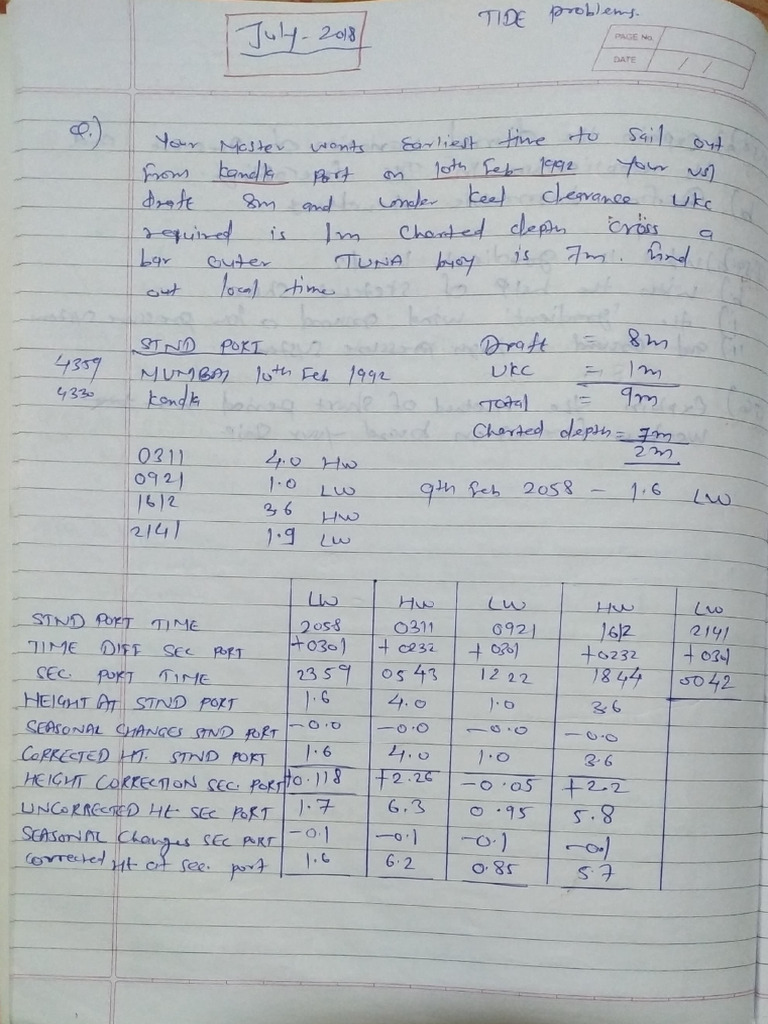 TIDE problems.
July - 2018
PAGE No.
DATE / /
Q.) Your Master wants Earliest time to Sail out
from kandla port on 10th Feb 1992 Your vsl
draft 8m and under keel clearance UKC
required is 1m Charted depth cross a
bar outer TUNA buoy is 7m. find
out local time
STND PORT Draft = 8m
4359 MUMBAI 10th Feb 1992 UKC = 1m
4330 kandla Total = 9m
Charted depth = 7m
2m
0311 4.0 HW
0921 1.0 LW 9th Feb 2058 - 1.6 LW
1612 3.6 HW
2141 1.9 LW
LW HW LW HW LW
STND PORT TIME 2058 0311 0921 1612 2141
TIME DIFF SEC PORT +0301 +0232 +0301 +0232 +0301
SEC. PORT TIME 2359 0543 1222 1844 0042
HEIGHT AT STND PORT 1.6 4.0 1.0 3.6
SEASONAL CHANGES STND PORT -0.0 -0.0 -0.0 -0.0
CORRECTED HT. STND PORT 1.6 4.0 1.0 3.6
HEIGHT CORRECTION SEC. PORT +0.118 +2.26 -0.05 +2.2
UNCORRECTED Ht. SEC PORT 1.7 6.3 0.95 5.8
SEASONAL Changes SEC PORT -0.1 -0.1 -0.1 -0.1
Corrected Ht at sec. port 1.6 6.2 0.85 5.7